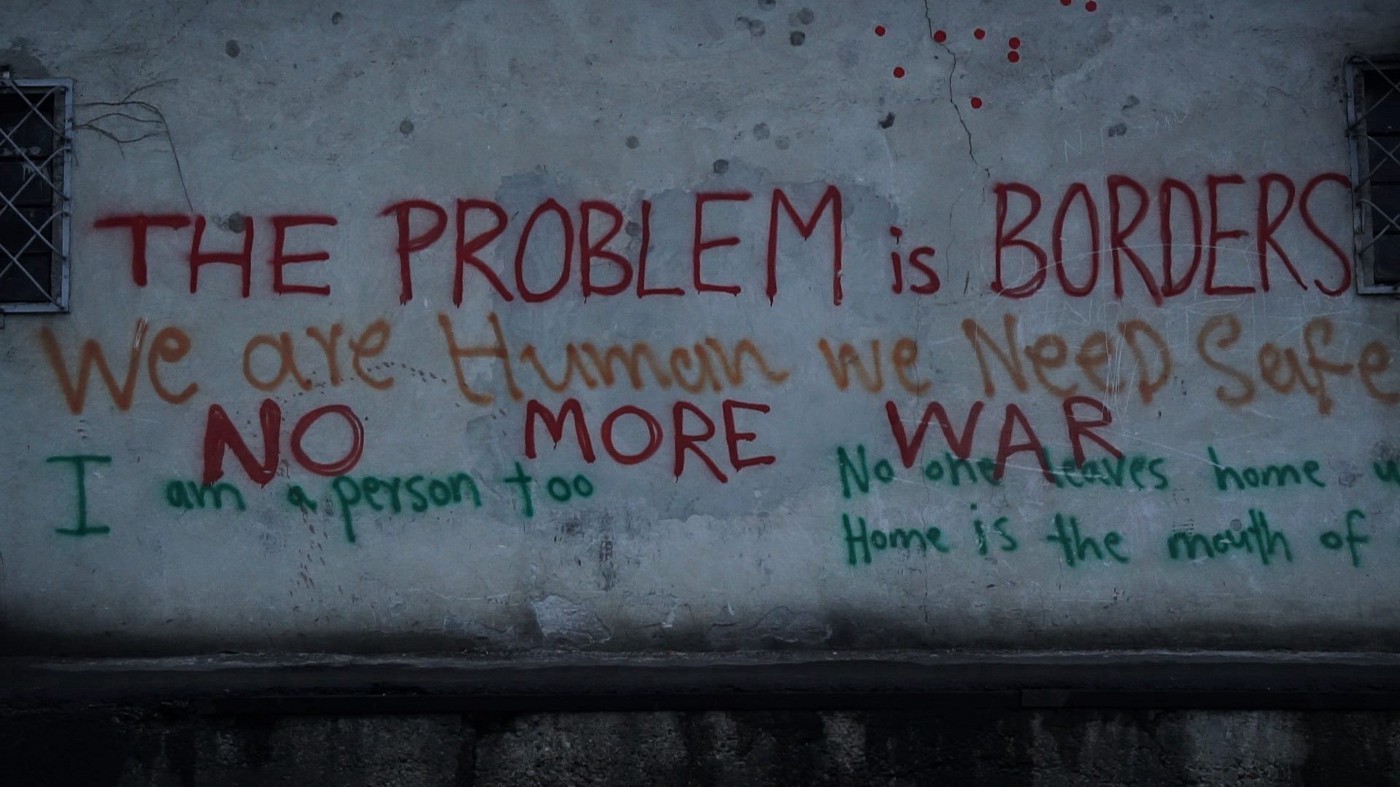 THE PROBLEM is BORDERS
We are Human we Need Safe
NO MORE WAR
I am a person too
No one leaves home
Home is the mouth of